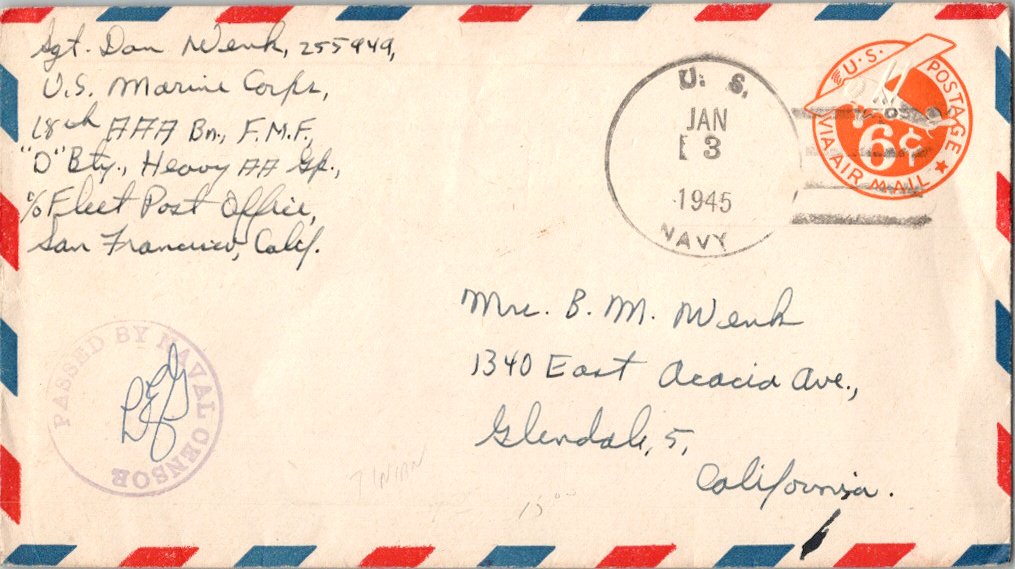 Sgt. Dan Wenk, 255949,
U.S. Marine Corps,
18th AAA Bn., F.M.F.,
"D" Bty., Heavy AA Gp.,
℅ Fleet Post Office,
San Francisco, Calif.
U. S.
JAN
3
1945
NAVY
U.S. POSTAGE
6¢
VIA AIR MAIL
Mrs. B. M. Wenk
1340 East Acacia Ave.,
Glendale, 5,
California.
PASSED BY NAVAL CENSOR
TINIAN
15⁰⁰